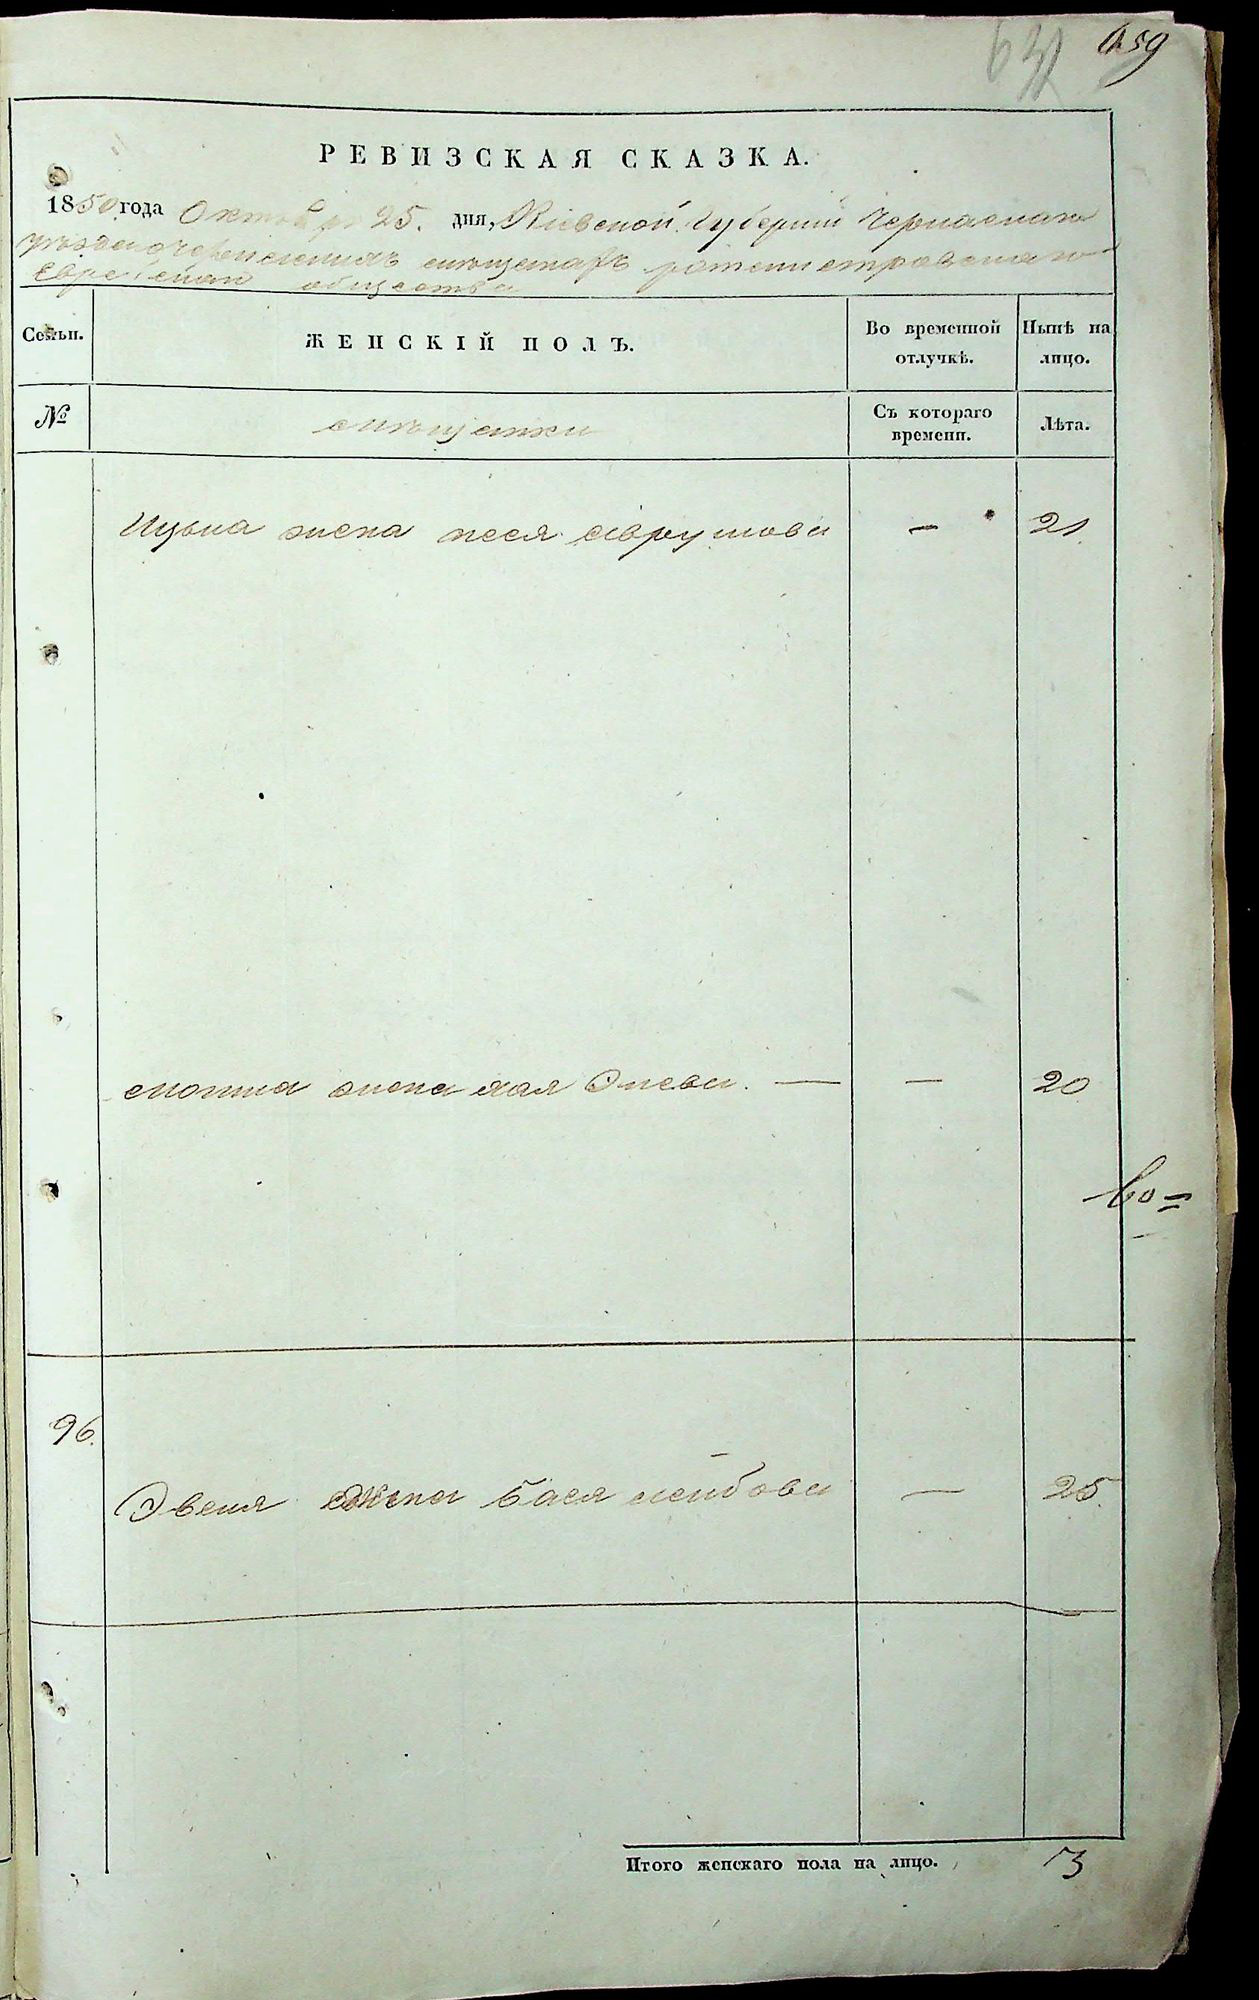 659
РЕВИЗСКАЯ СКАЗКА.
1850 года Октября 25. дня, Кіевской Губерніи Черкаскаго
уѣзда мѣщанахъ ротмистровскаго
Еврейскаго общества
Семьи.
ЖЕНСКІЙ ПОЛЪ.
Во временной отлучкѣ.
Нынѣ на лицо.
№
мѣщанки
Съ котораго времени.
Лѣта.
Ицька жена песя — 21
жена хая — — 20
96.
жена Бася лейбова — 25.
Итого женскаго пола на лицо. 3